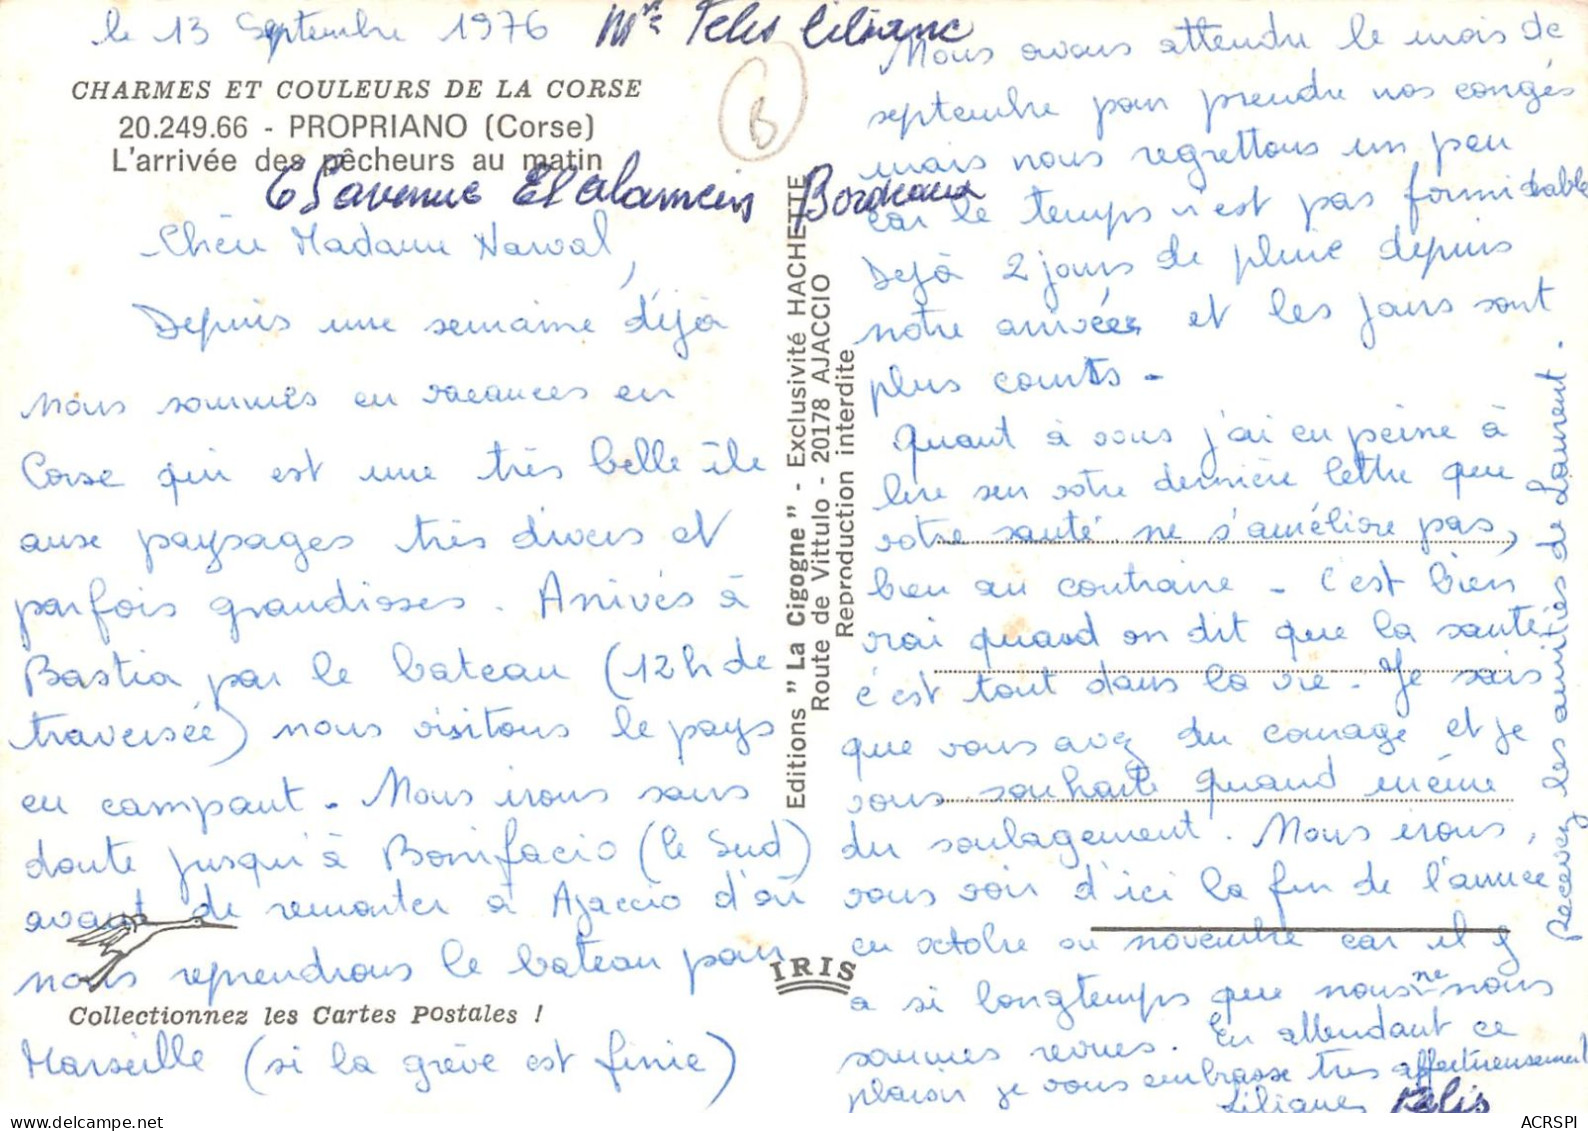 le 13 Septembre 1976
Mme Felis Liliane
CHARMES ET COULEURS DE LA CORSE
20.249.66 - PROPRIANO (Corse)
L'arrivée des pêcheurs au matin
65 avenue El Alamein Bordeaux
B
Chère Madame Narval,
Depuis une semaine déjà
nous sommes en vacances en
Corse qui est une très belle île
aux paysages très divers et
parfois grandioses. Arrivés à
Bastia par le bateau (12h de
traversée) nous visitons le pays
en campant - Nous irons sans
doute jusqu'à Bonifacio (le Sud)
avant de remonter à Ajaccio d'où
nous reprendrons le bateau pour
Collectionnez les Cartes Postales !
Marseille (si la grève est finie)
Editions "La Cigogne" - Exclusivité HACHETTE
Route de Vittulo - 20178 AJACCIO
Reproduction interdite
IRIS
Nous avons attendu le mois de
septembre pour prendre nos congés
mais nous regrettons un peu
car le temps n'est pas formidable
Déjà 2 jours de pluie depuis
notre arrivée et les jours sont
plus courts -
Quant à vous j'ai eu peine à
lire sur votre dernière lettre que
votre santé ne s'améliore pas,
bien au contraire - C'est bien
vrai quand on dit que la santé
c'est tout dans la vie. Je sais
que vous avez du courage et je
vous souhaite quand même
du soulagement. Nous irons,
vous voir d'ici la fin de l'année
en octobre ou novembre car il y
a si longtemps que nous ne nous
sommes revues. En attendant ce
plaisir je vous embrasse très affectueusement
Liliane Felis
Recevez les amitiés de Laurent.
ACRSPI